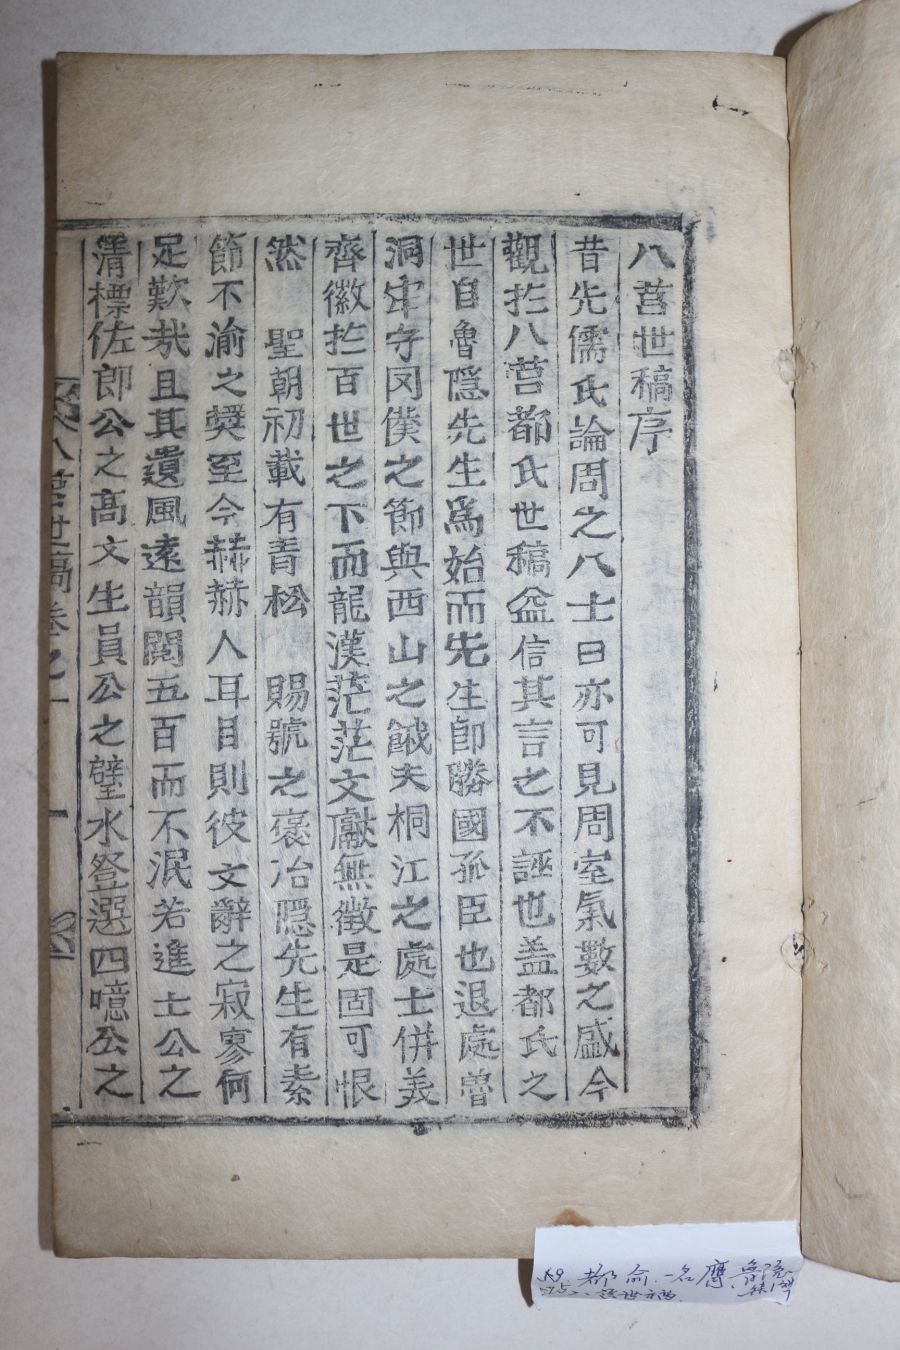 八莒世稿序
昔先儒氏論周之八士曰亦可見周室氣數之盛今
觀於八莒都氏世稿益信其言之不誣也盖都氏之
世自魯隱先生爲始而先生卽勝國孤臣也退處魯
洞牢守罔僕之節與西山之餓夫桐江之處士併義
齊徽於百世之下而龍漢茫茫文獻無徵是固可恨
然 聖朝初載有青松 賜號之褒冶隱先生有素
節不渝之奬至今赫赫人耳目則彼文辭之寂寥何
足歎哉且其遺風遠韻閱五百而不泯若進士公之
淸標佐郎公之高文生員公之璧水登選四噫公之
八莒世稿卷之一
都 俞 一名膺 魯隱